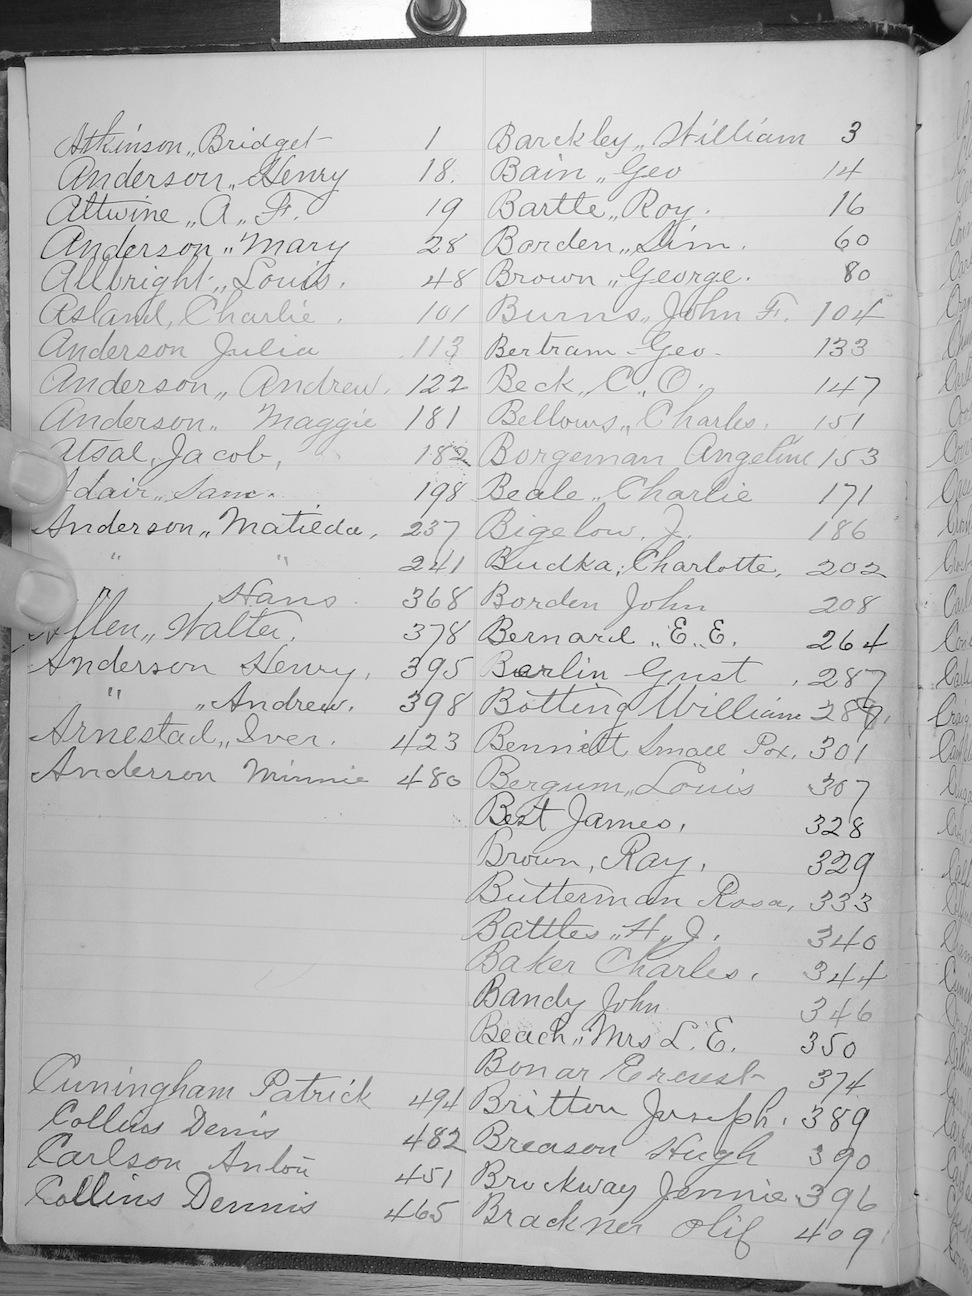 Atkinson,, Bridget 1
Anderson,, Henry 18.
Altwine,, A,, F. 19
Anderson,, Mary 28
Allbright,, Louis. 48
Asland, Charlie. 101
Anderson Julia 113
Anderson,, Andrew. 122
Anderson,, Maggie 181
Atsal, Jacob, 182
Adair,, Sam. 198
Anderson,, Matilda, 237
" " 241
" Hans. 368
Aflen,, Walter. 378
Anderson Henry, 395
" ,, Andrew. 398
Arnestad,, Iver. 423
Anderson Minnie 480
Cuningham Patrick 494
Collins Denis 482
Carlson Anton 451
Collins Dennis 465
Barckley,, William 3
Bain,, Geo 14
Bartle,, Roy. 16
Borden,, Sim. 60
Brown,, George. 80
Burns,, John F. 104
Bertram - Geo - 133
Beck,, C,, O., 147
Bellows,, Charles. 151
Borgeman Angeline 153
Beale,, Charlie 171
Bigelow, J. 186
Budka, Charlotte, 202
Borden John 208
Bernard,, E.. E. 264
Berlin Gust. 287
Botting William 289.
Bennett Small Pox. 301
Bergum,, Louis 307
Best James, 328
Brown, Ray, 329
Butterman Rosa, 333
Battles,, H,, J. 340
Baker Charles. 344
Bandy John 346
Beach,, Mrs L. E. 350
Bonar Ernest 374
Britton Joseph. 389
Breason Hugh 390
Brockway Jennie 396
Brackner Olif 409